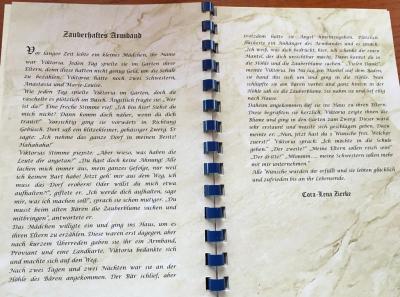 Zauberhaftes Armband
Vor langer Zeit lebte ein kleines Mädchen, ihr Name
war Viktoria. Jeden Tag spielte sie im Garten ihrer
Eltern, denn diese hatten nicht genug Geld, um die Schule
zu bezahlen. Viktoria hatte noch zwei Schwestern,
Anastasia und Marie.
Wie jeden Tag spielte Viktoria im Garten, doch da
raschelte es plötzlich im Busch. Ängstlich fragte sie: „Wer
ist da?" Eine freche Stimme rief: „Ich bin hier! Siehst du
mich nicht? Dann komm doch näher, wenn du dich
traust!" Vorsichtig ging sie vorwärts in Richtung
Gebüsch. Dort saß ein klitzekleiner, gehässiger Zwerg. Er
sagte: „Ich nehme das ganze Dorf in meinen Besitz!
Hahahahaha!"
Viktorias Stimme piepste: „Aber wieso, was haben die
Leute dir angetan?" „Du hast doch keine Ahnung! Alle
lachen mich immer aus, mein ganzes Gefolge, nur weil
ich keinen Bart habe! Jetzt geh mir aus dem Weg, ich
muss das Dorf erobern! Oder willst du mich etwa
aufhalten?", giftete er. „Ich werde dich aufhalten, sage
mir, was ich machen soll", sprach sie schon mutiger. „Du
musst beim alten Bären die Zauberblume suchen und
mitbringen", antwortete er.
Das Mädchen willigte ein und ging ins Haus, um es
ihren Eltern zu erzählen. Diese waren erst dagegen, aber
nach kurzem Überreden gaben sie ihr ein Armband,
Proviant und eine Landkarte. Viktoria bedankte sich
und machte sich auf den Weg.
Nach zwei Tagen und zwei Nächten war sie an der
Höhle des Bären angekommen. Der Bär schlief, aber
trotzdem hatte sie Angst hineinzugehen. Plötzlich
flackerte ein Anhänger des Armbandes und es sprach:
„Ich weiß, was dich bedrückt, hier, ich schenke dir einen
Mantel, der dich unsichtbar macht. Dann kannst du in
die Höhle und die Zauberblume suchen." „Vielen Dank!",
meinte Viktoria. Im Nu lag ein Mantel auf dem Boden,
sie band ihn sich um und ging in die Höhle. Nun
schlüpfte sie am Bären vorbei und ganz hinten in der
Höhle sah sie die Zauberblume. Sie nahm sie und lief eilig
nach Hause.
Daheim angekommen lief sie ins Haus zu ihren Eltern.
Diese begrüßten sie herzlich. Viktoria zeigte ihnen die
Blume und ging in den Garten zum Zwerg. Dieser ward
sehr erstaunt und musste sich geschlagen geben. Dazu
meinte er: „Nun, jetzt hast du 3 Wünsche frei. Welcher
zuerst?" Viktoria sprach: „Ich möchte in die Schule
gehen." „Der zweite?" „Meine Eltern sollen reich sein"
„Der dritte?" „Mmmmm.... meine Schwestern sollen mehr
mit mir unternehmen."
Alle Wünsche wurden ihr erfüllt und sie lebten glücklich
und zufrieden bis an ihr Lebensende.
Cora-Lena Zierke